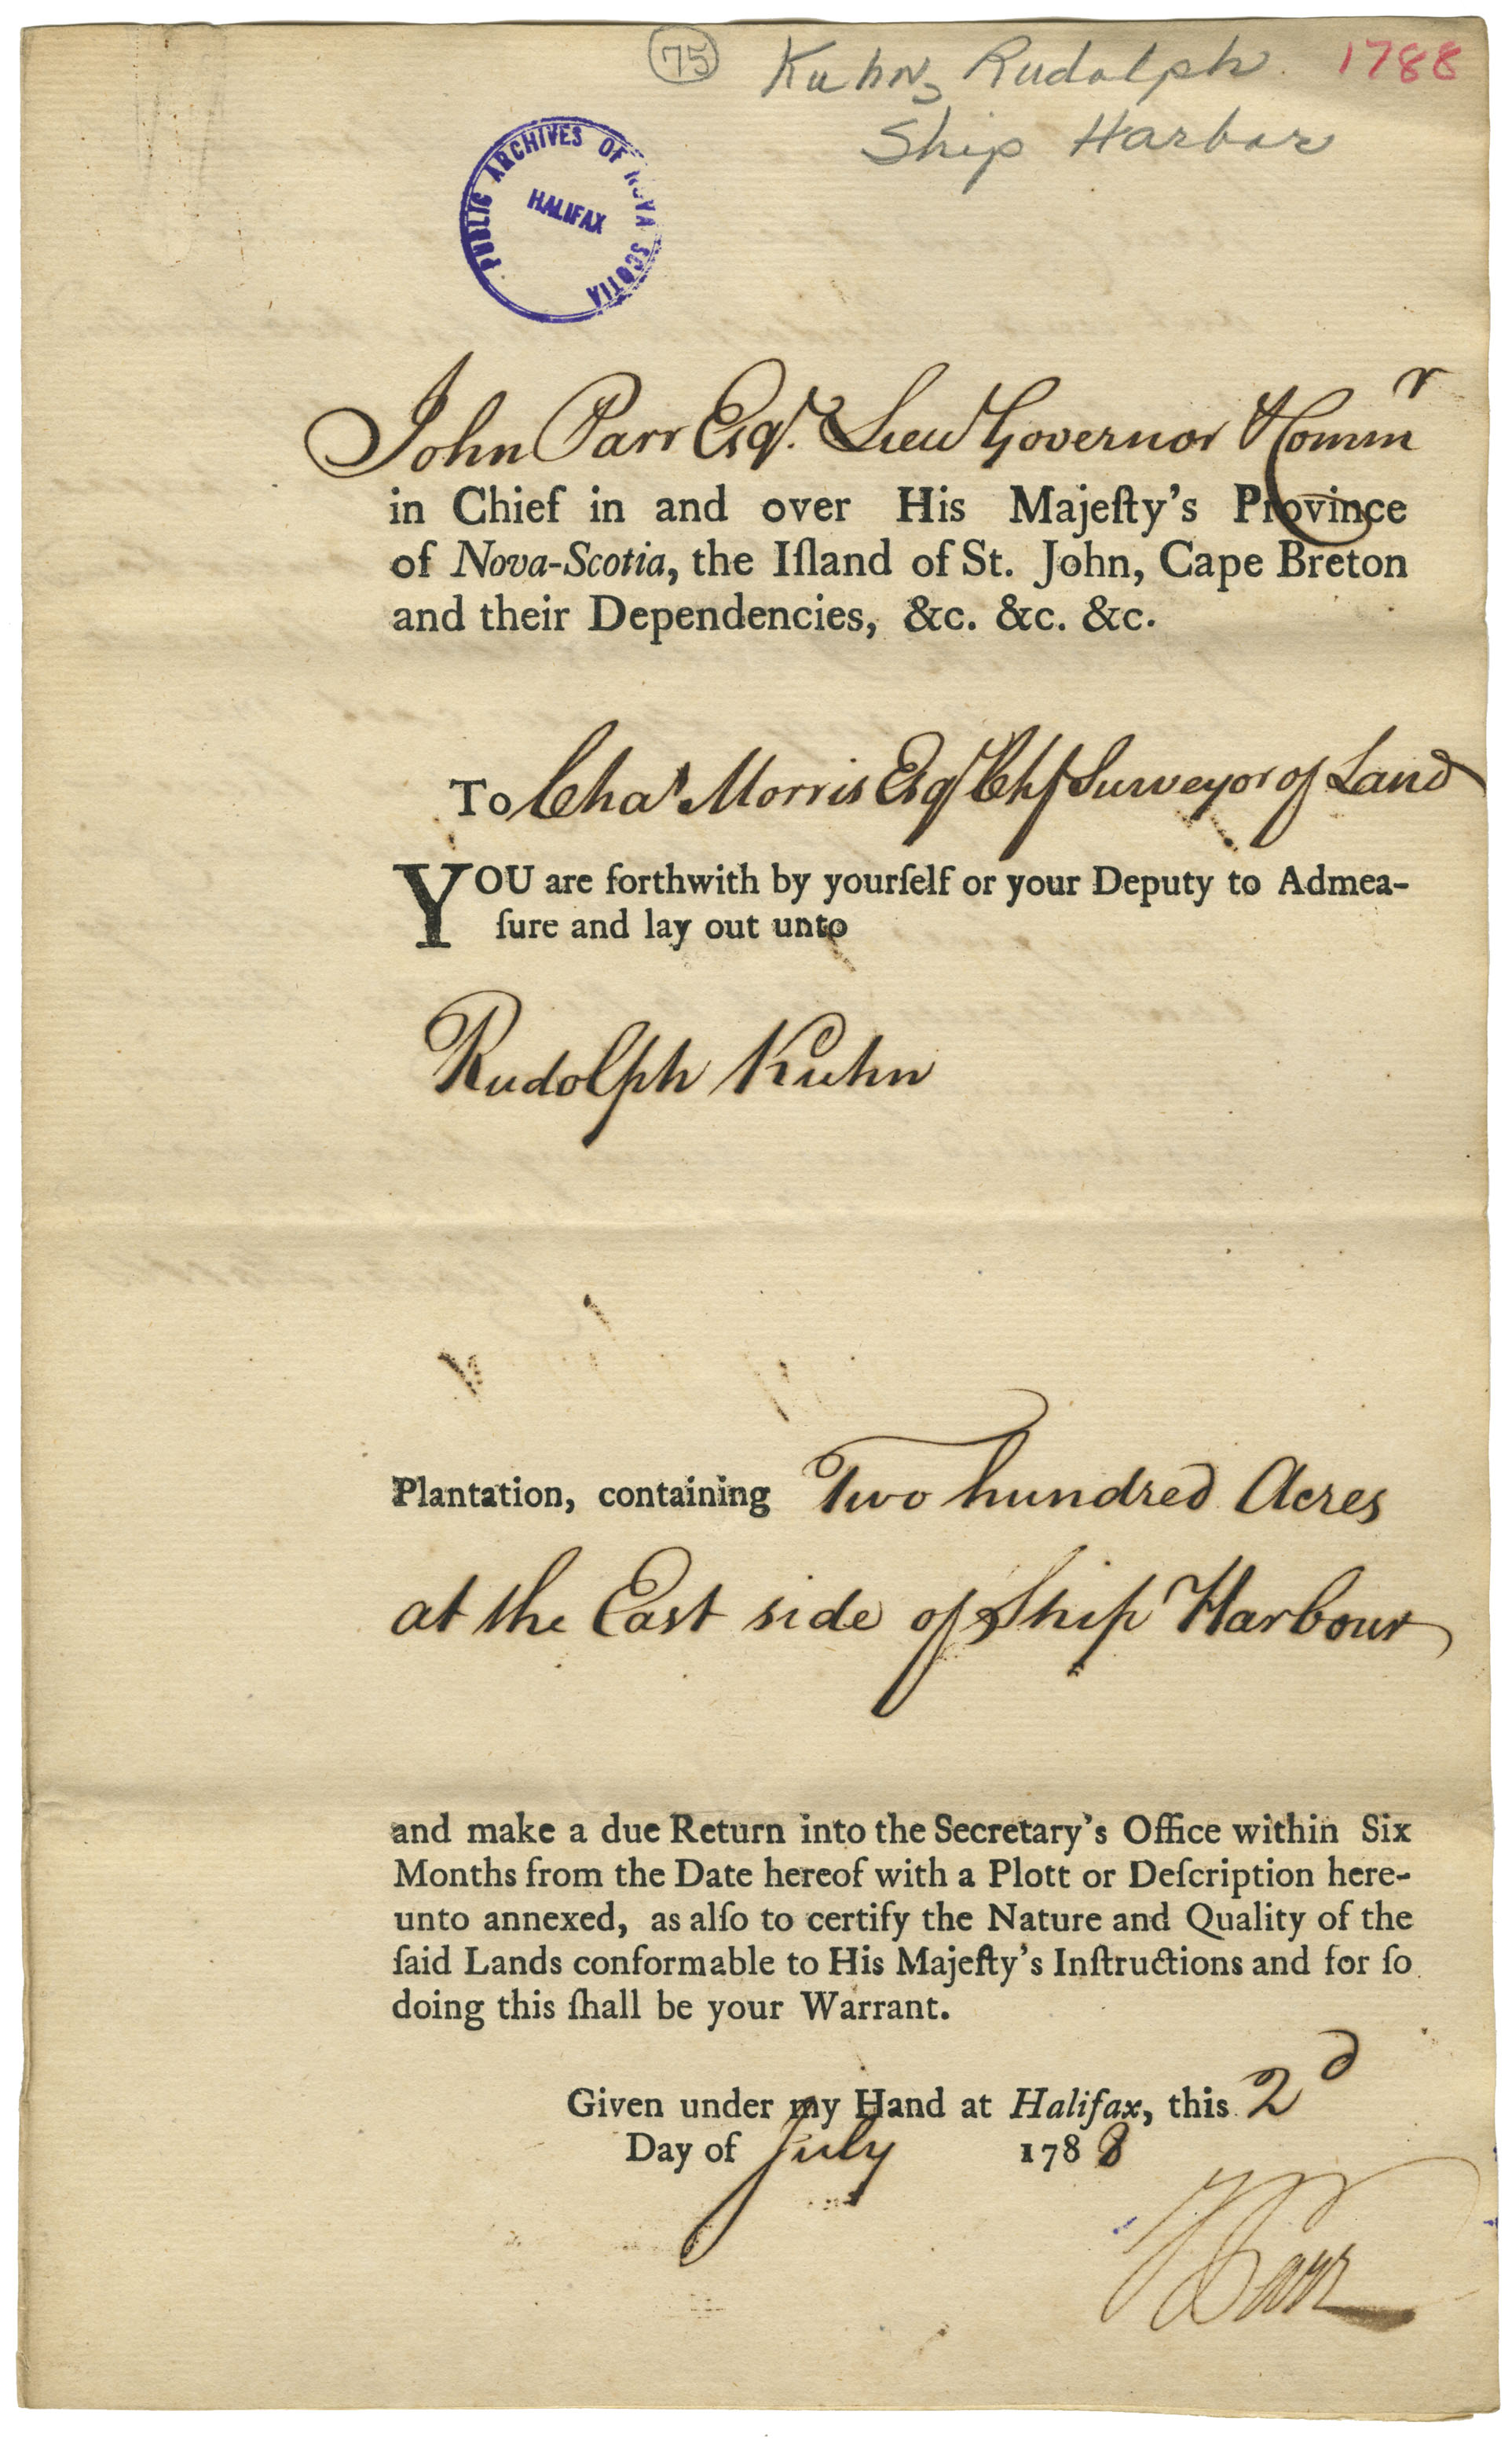 75 Kuhn, Rudolph 1788
Ship Harbor
PUBLIC ARCHIVES OF NOVA SCOTIA
HALIFAX
John Parr Esqr. Lieut Governor & Commr
in Chief in and over His Majeſty's Province
of Nova-Scotia, the Iſland of St. John, Cape Breton
and their Dependencies, &c. &c. &c.
To Chas Morris Esqr Chf Surveyor of Land
YOU are forthwith by yourſelf or your Deputy to Admea-
ſure and lay out unto
Rudolph Kuhn
Plantation, containing Two hundred Acres
at the East side of Ship Harbour
and make a due Return into the Secretary's Office within Six
Months from the Date hereof with a Plott or Deſcription here-
unto annexed, as alſo to certify the Nature and Quality of the
ſaid Lands conformable to His Majeſty's Inſtructions and for ſo
doing this ſhall be your Warrant.
Given under my Hand at Halifax, this 2d
Day of July 1788
J Parr